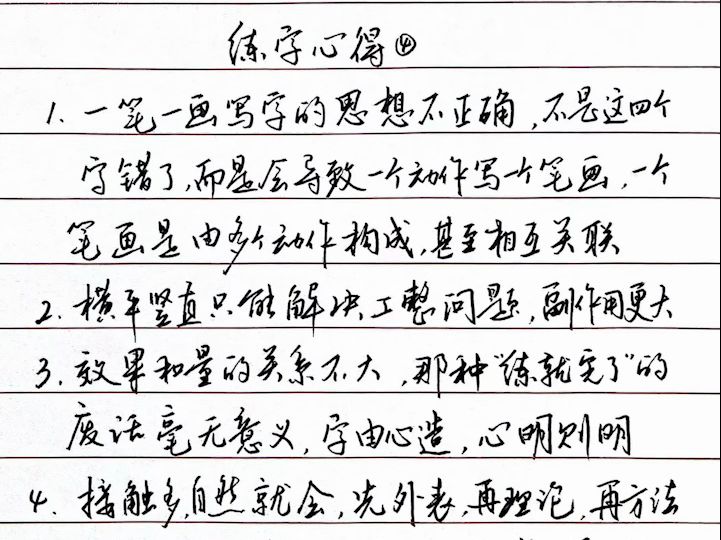 练字心得④
1. 一笔一画写字的思想不正确，不是这四个
字错了，而是会导致一个动作写一个笔画，一个
笔画是由多个动作构成，甚至相互关联
2. 横平竖直只能解决工整问题，副作用更大
3. 效果和量的关系不大，那种“练就完了”的
废话毫无意义，字由心造，心明则明
4. 接触多，自然就会，先外表，再理论，再方法